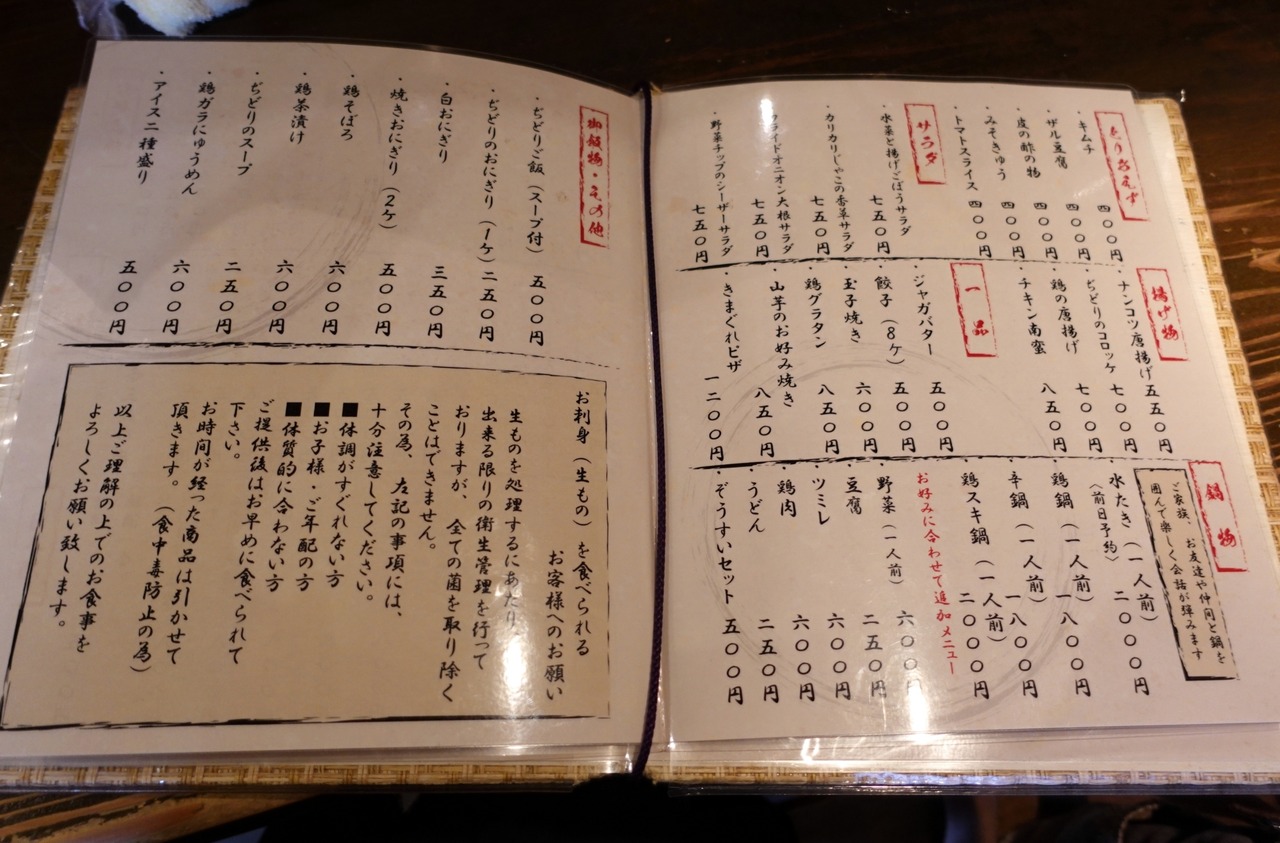 とりあえず
・キムチ 四〇〇円
・ザル豆腐 四〇〇円
・皮の酢の物 四〇〇円
・みそきゅう 四〇〇円
・トマトスライス 四〇〇円
サラダ
・水菜と揚げごぼうサラダ 七五〇円
・カリカリじゃこの香草サラダ 七五〇円
・フライドオニオン大根サラダ 七五〇円
・野菜チップのシーザーサラダ 七五〇円
揚げ物
・ナンコツ唐揚げ 五五〇円
・ぢどりのコロッケ 七〇〇円
・鶏の唐揚げ 七〇〇円
・チキン南蛮 八五〇円
一品
・ジャガバター 五〇〇円
・餃子（８ケ） 五〇〇円
・玉子焼き 六〇〇円
・鶏グラタン 八五〇円
・山芋のお好み焼き 八五〇円
・きまぐれピザ 一二〇〇円
鍋物
ご家族、お友達や仲間と鍋を
囲んで楽しく会話が弾みます
・水たき（一人前） 二〇〇〇円
（前日予約）
・鶏鍋（一人前） 一八〇〇円
・辛鍋（一人前） 一八〇〇円
・鶏スキ鍋（一人前） 二〇〇〇円
お好みに合わせて追加メニュー
・野菜（一人前） 六〇〇円
・豆腐 二五〇円
・ツミレ 六〇〇円
・鶏肉 六〇〇円
・うどん 二五〇円
・ぞうすいセット 五〇〇円
御飯物・その他
・ぢどりご飯（スープ付） 五〇〇円
・ぢどりのおにぎり（１ケ） 二五〇円
・白おにぎり 三五〇円
・焼きおにぎり（２ケ） 五〇〇円
・鶏そぼろ 六〇〇円
・鶏茶漬け 六〇〇円
・ぢどりのスープ 二五〇円
・鶏ガラにゅうめん 六〇〇円
・アイス二種盛り 五〇〇円
お刺身（生もの）を食べられる
お客様へのお願い
生ものを処理するにあたり、
出来る限りの衛生管理を行って
おりますが、全ての菌を取り除く
ことはできません。
その為、左記の事項には、
十分注意してください。
■体調がすぐれない方
■お子様・ご年配の方
■体質的に合わない方
ご提供後はお早めに食べられて
下さい。
お時間が経った商品は引かせて
頂きます。（食中毒防止の為）
以上ご理解の上でのお食事を
よろしくお願い致します。